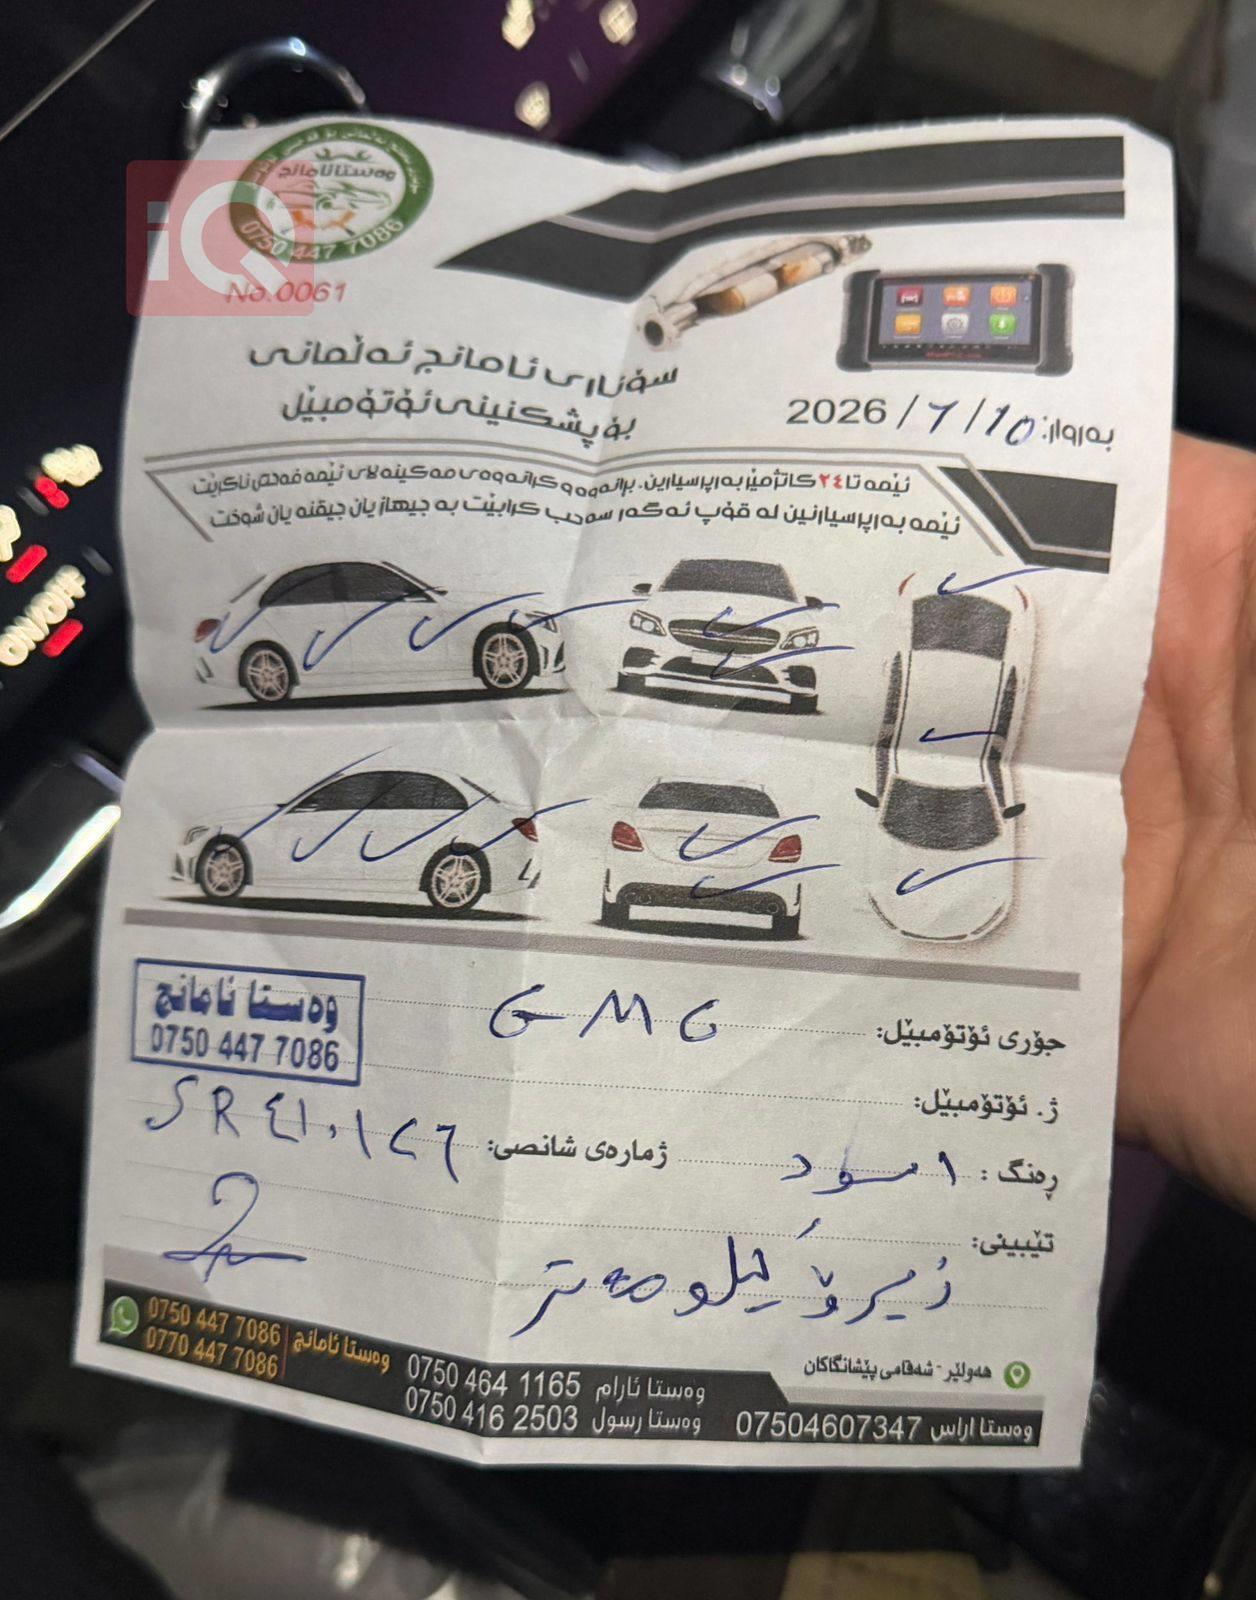 iQ
وەستا ئامانج
0750 447 7086
No.0061
سۆناری ئامانج ئەڵمانی
بۆ پشکنینی ئۆتۆمبێل
بەروار: 10 / 7 / 2026
ئێمە تا ٢٤ کاتژمێر بەرپرسیارین. برانەوە و کرانەوەی مەکینە لای ئێمە فەحص ناکرێت
ئێمە بەرپرسیارنین لە قۆپ ئەگەر سەحب کرابێت بە جیهاز یان جیقنە یان شوخت
جۆری ئۆتۆمبێل: GMC
وەستا ئامانج
0750 447 7086
ژ. ئۆتۆمبێل:
ڕەنگ: اسود
ژمارەی شانصی: SR٤١٠١٢٦
تێبینی:
زیرۆ کیلومەتر
هەولێر - شەقامی پێشانگاکان
0750 447 7086
0770 447 7086
وەستا ئامانج
وەستا ئارام 0750 464 1165
وەستا رسول 0750 416 2503
وەستا اراس 07504607347
ON/OFF